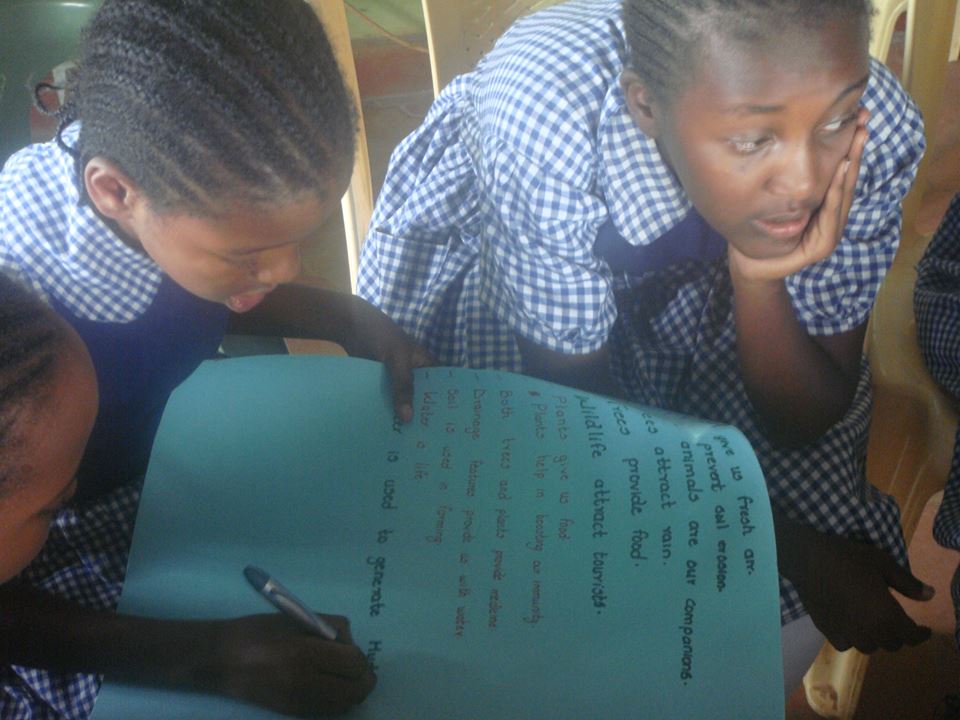 give us fresh air.
prevent soil erosion.
animals are our companions.
attract rain.
Trees provide food.
Wildlife attract tourists.
Plants give us food.
Plants help in boosting our immunity.
- Both trees and plants provide medicine
- Drainage features provide us with water
- Soil is used in farming
- Water is life
is used to generate